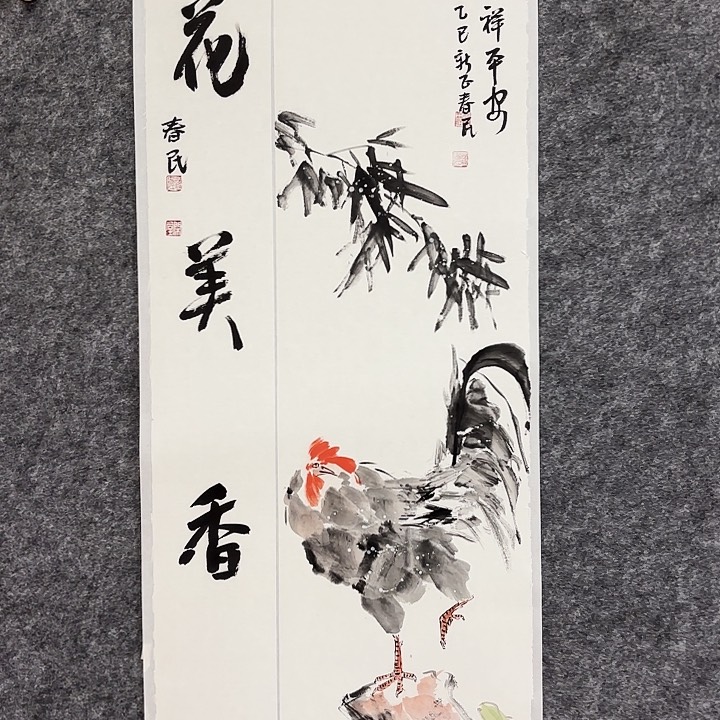 祥平安
乙巳新正春民
花美香
春民